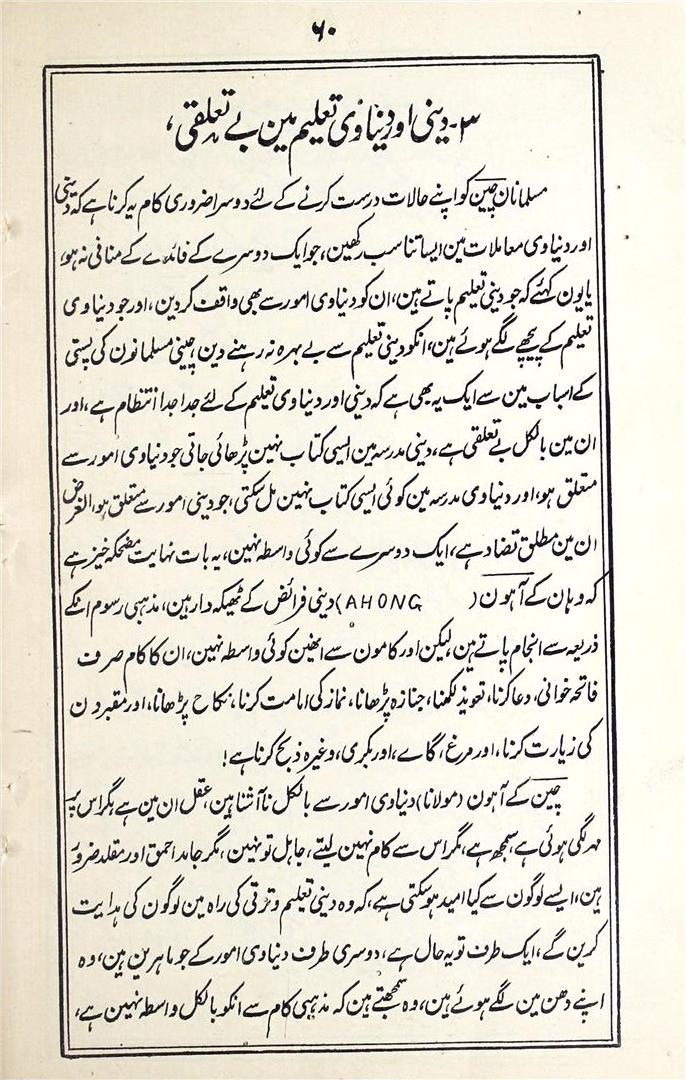 ۶۰
۳- دینی اور دنیاوی تعلیم مین بے تعلقی،
مسلمانان چین کو اپنے حالات درست کرنے کے لئے دوسرا ضروری کام یہ کرنا ہے کہ دینی
اور دنیاوی معاملات مین ایسا تناسب رکھین، جو ایک دوسرے کے فائدے کے منافی نہ ہو،
یا یون کہئے کہ جو دینی تعلیم پاتے ہین، ان کو دنیاوی امور سے بھی واقف کردین، اور جو دنیاوی
تعلیم کے پیچھے لگے ہوئے ہین، انکو دینی تعلیم سے بے بہرہ نہ رہنے دین چینی مسلمانون کی پستی
کے اسباب مین سے ایک یہ بھی ہے کہ دینی اور دنیاوی تعلیم کے لئے جدا جدا انتظام ہے، اور
ان مین بالکل بے تعلقی ہے، دینی مدرسہ مین ایسی کتاب نہین پڑھائی جاتی جو دنیاوی امور سے
متعلق ہو، اور دنیاوی مدرسہ مین کوئی ایسی کتاب نہین مل سکتی، جو دینی امور سے متعلق ہو، الغرض
ان مین مطلق تضاد ہے، ایک دوسرے سے کوئی واسطہ نہین، یہ بات نہایت مضحکہ خیز ہے
کہ وہان کے آہون (AHONG) دینی فرائض کے ٹھیکہ دار ہین، مذہبی رسوم انکے
ذریعہ سے انجام پاتے ہین، لیکن اور کامون سے انھین کوئی واسطہ نہین، ان کا کام صرف
فاتحہ خوانی، دعا کرنا، تعویذ لکھنا، جنازہ پڑھانا، نماز کی امامت کرنا، نکاح پڑھانا، اور مقبرون
کی زیارت کرنا، اور مرغ، گاے، اور بکری، وغیرہ ذبح کرنا ہے!
چین کے آہون (مولانا) دنیاوی امور سے بالکل ناآشنا ہین، عقل ان مین ہے مگر اس پر
مہر لگی ہوئی ہے سمجھ ہے، مگر اس سے کام نہین لیتے، جاہل تو نہین، مگر جامد احمق اور مقلد ضرور
ہین، ایسے لوگون سے کیا امید ہوسکتی ہے، کہ وہ دینی تعلیم و ترقی کی راہ مین لوگون کی ہدایت
کرین گے، ایک طرف تو یہ حال ہے، دوسری طرف دنیاوی امور کے جو ماہرین ہین، وہ
اپنے دھن مین لگے ہوئے ہین، وہ سمجھتے ہین کہ مذہبی کام سے انکو بالکل واسطہ نہین ہے،